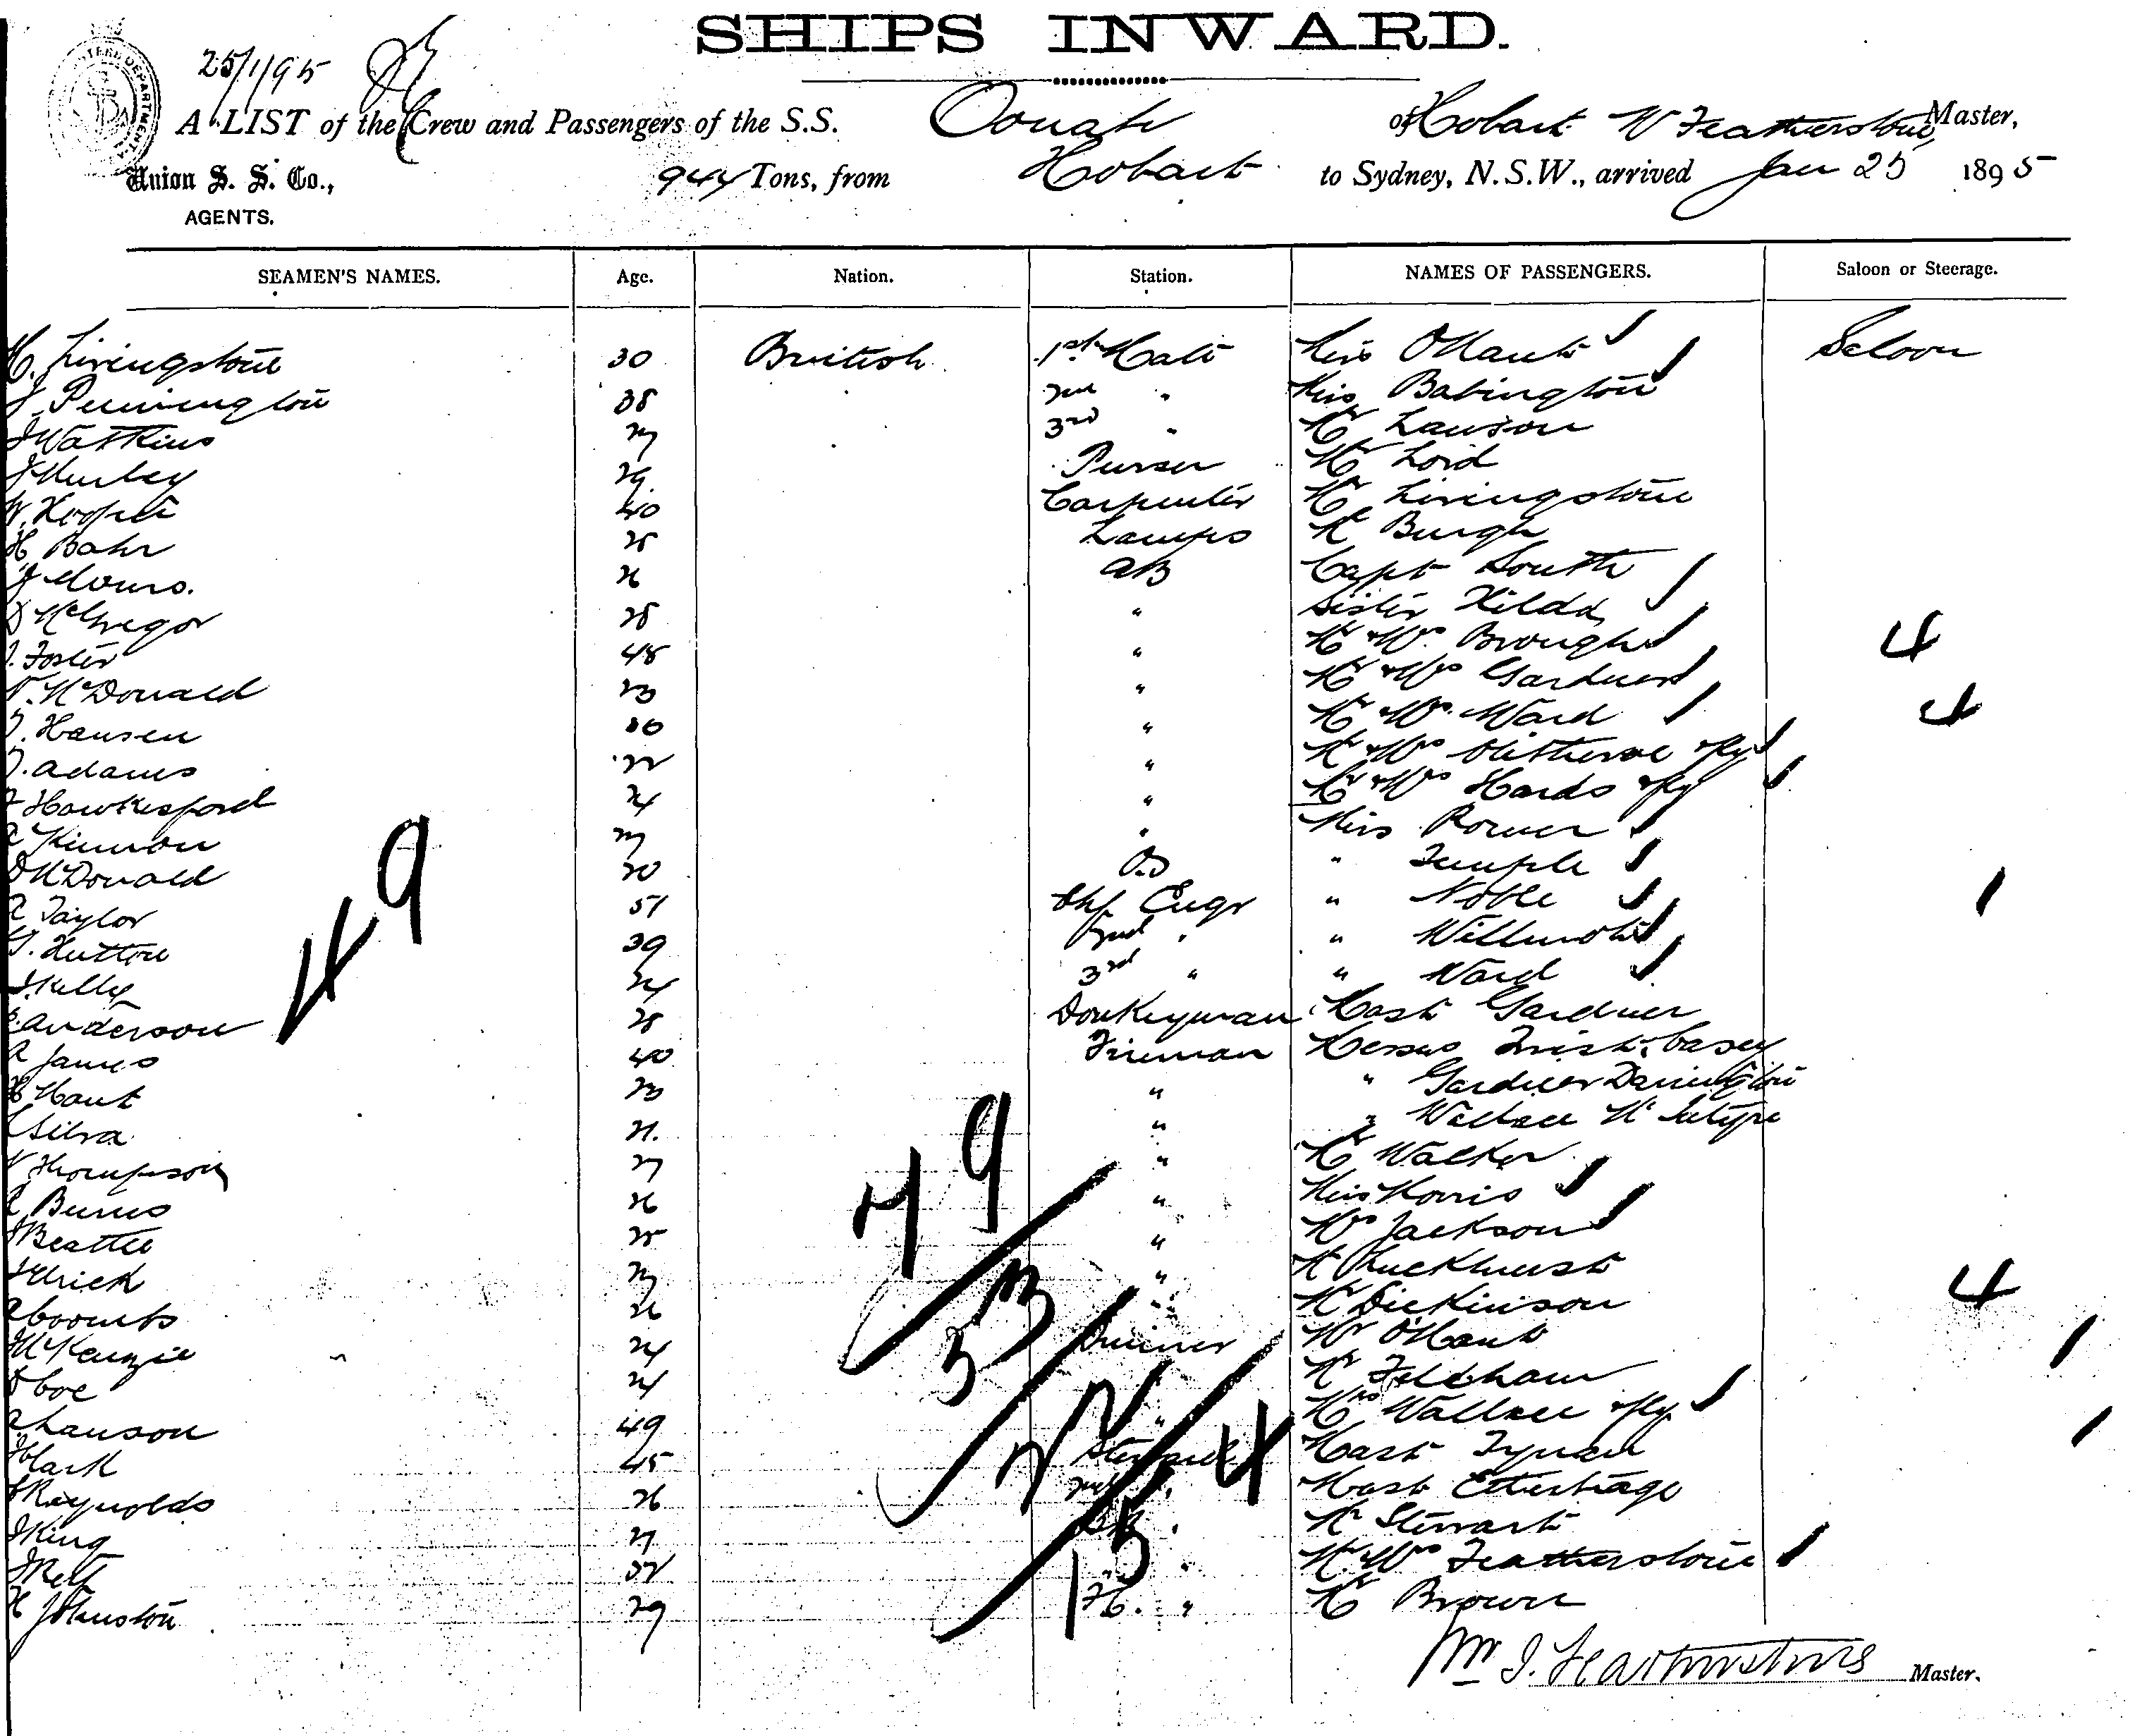 SHIPS INWARD.
25/1/95
A LIST of the Crew and Passengers of the S.S. Oonah of Hobart W Featherstone, Master,
Union S. S. Co., 944 Tons, from Hobart to Sydney, N.S.W., arrived Jan 25 1895
AGENTS.
SEAMEN'S NAMES. Age. Nation. Station. NAMES OF PASSENGERS. Saloon or Steerage.
H. Livingstone 30 British 1st Mate Miss Saloon
J Pennington 38 2nd " Miss Babington
J Watkins 27 3rd " Mr Lawson
J Hurley 29 Purser Mr Lord
W. 40 Carpenter Mr Livingstone
H Bahr 25 Lamps Mr Burgh
J 26 AB Capt South
D McGregor 28 " Sister Hilda
J. Foster 48 " Mr & Mrs Brough 4
N. McDonald 23 " Mr & Mrs Gardner
J. Hansen 30 " Mr & Mrs Ward 4
J. Adams 22 " Mr & Mrs & fly
F Hawkesford 24 " Mr & Mrs Hards & fly
A Kinnon 27 " Miss Rower
D McDonald 20 OS " Temple
A Taylor 51 Chf Engr " Noble 1
G. Hutton 39 2nd " " Willmott
J Kelly 24 3rd " " Ward
Anderson 28 Donkeyman Mast Gardner
A James 40 Fireman Messrs Trist, Casey
H Hant 23 " " Gardner Darrington
Silva 21. " " Wallace McIntyre
W Thompson 27 " Mr Walker
A Burns 26 " Miss Morris
J Beattie 25 " Mrs Jackson
J 27 " Mr Luckhurst
A Coombs 26 " Mr Dickinson 4
J McKenzie 24 Trimmer Mr 1
Coe 24 Mr Feldham
A Lawson 49 " Mrs Wallace & fly 1
Clark 45 Steward Mast Tynan
Reynolds 26 2nd " Mast
J King 27 " Mr Stewart
J 32 " Mr & Mrs Featherstone
H Johnston 29 " Mr Brown
49
49
33
22
4
15
Wm J. Featherstone Master.